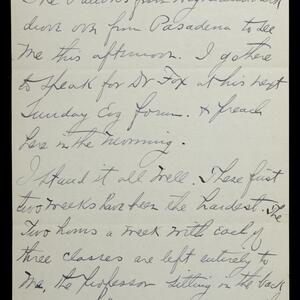 drove over from Pasadena to see
me this afternoon. I go there
to speak for Dr Fox at his next
Sunday Evg forum. & preach
here in the morning.
I stand it all well. These first
two weeks have been the hardest. The
two hours a week with each of
three classes are left entirely to
me, the Professor sitting on the back